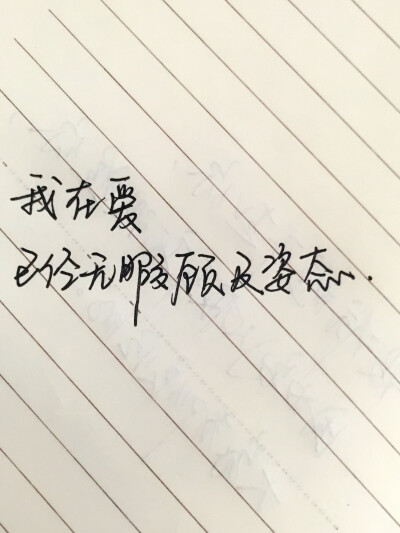 我在爱
已经无暇顾及姿态.